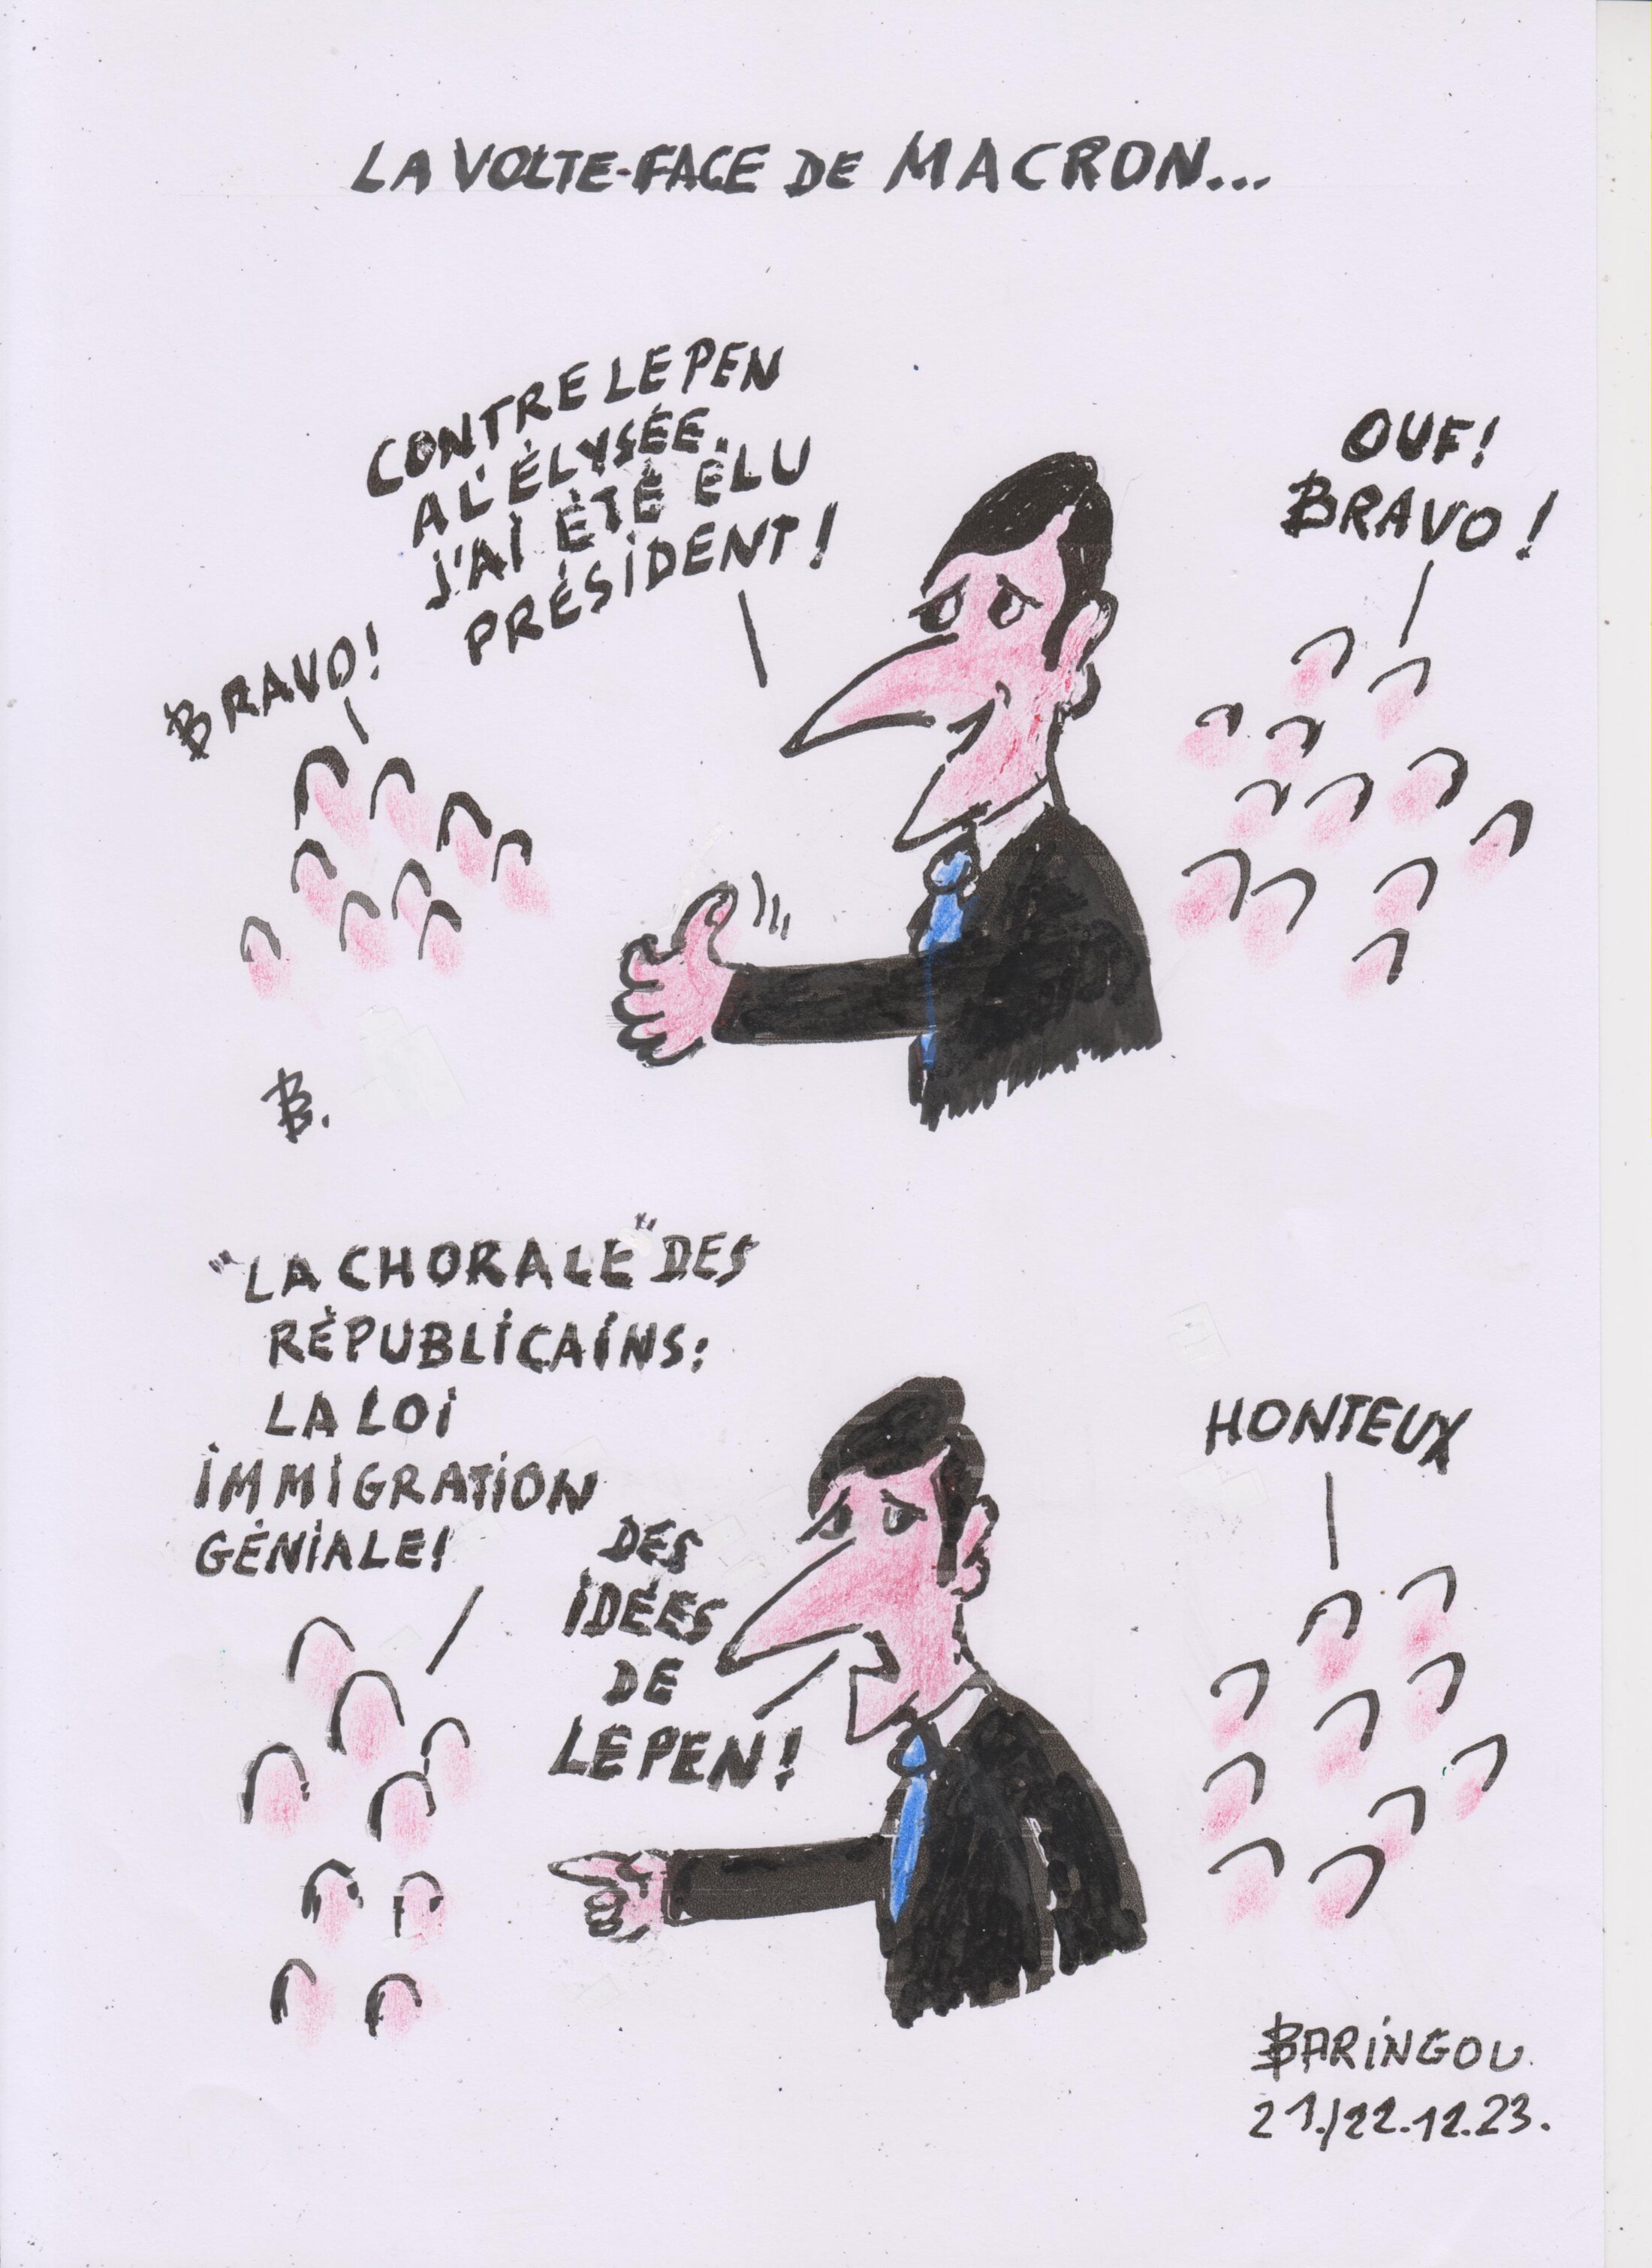 LA VOLTE-FACE DE MACRON...
CONTRE LE PEN
A L'ÉLYSÉE.
J'AI ÉTÉ ÉLU
PRÉSIDENT!
OUF!
BRAVO!
BRAVO!
B.
"LA CHORALE" DES
RÉPUBLICAINS:
LA LOI
IMMIGRATION
GÉNIALE!
DES
IDÉES
DE
LE PEN!
HONTEUX
BARINGOU.
21./22.12.23.